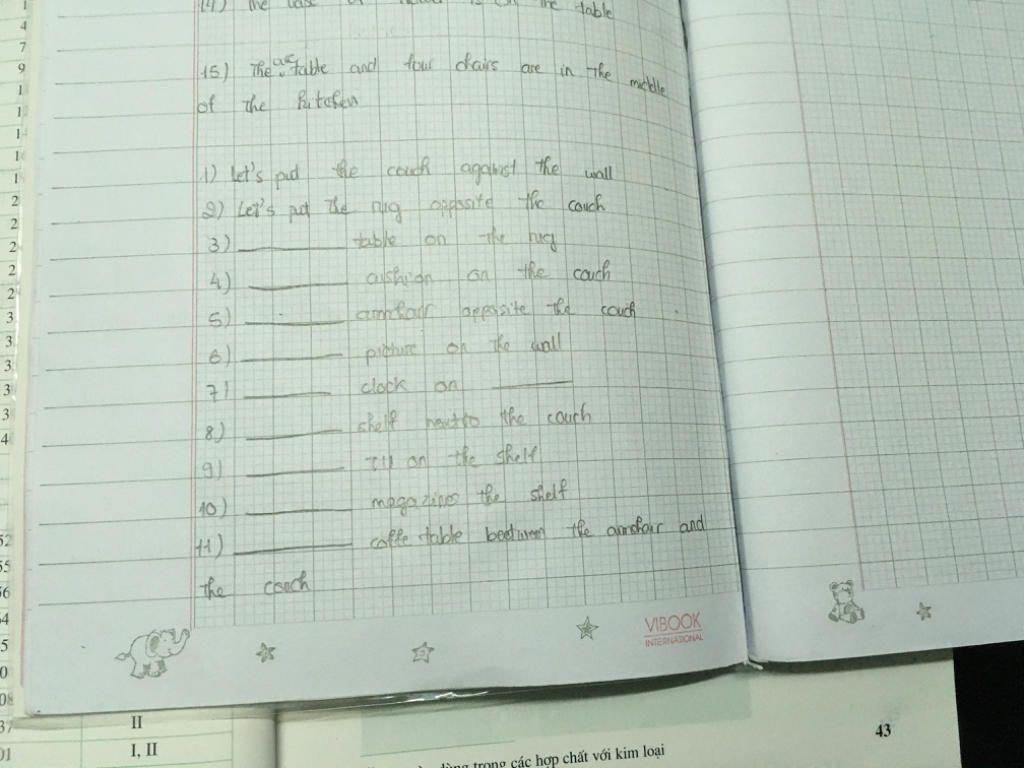 14) the vase of is on the table
15) The are table and four chairs are in the middle
of the kitchen
1) Let's put the couch against the wall
2) Let's put the rug opposite the couch
3) __________ table on the rug
4) __________ cushion on the couch
5) __________ armchair opposite the couch
6) __________ picture on the wall
7) __________ clock on __________
8) __________ shelf next to the couch
9) __________ on the shelf
10) __________ magazines the shelf
11) __________ coffe table beetween the armchair and
the couch
VIBOOK
INTERNATIONAL
II
I, II
43
dùng trong các hợp chất với kim loại